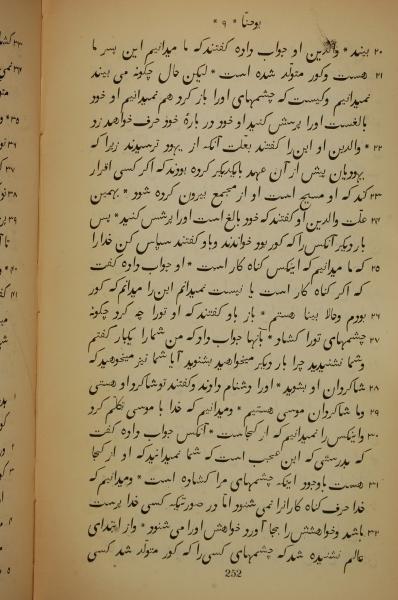 یوحنّا * ۹ *
۲۰ بیند * والدین او جواب داده گفتند که ما میدانیم این پسر ما
۲۱ هست وکور متولّد شده است * لیکن حال چگونه می بیند
نمیدانیم وکیست که چشمهای اورا باز کرد هم نمیدانیم او خود
بالغست اورا پرسش کنید او خود در بارهٔ خود حرف خواهد زد
۲۲ * والدین او این را گفتند بعلت آنکه از یهود ترسیدند زیرا که
یهودیان پیش از آن عهد بایکدیکر کرده بودند که اکر کسی اقرار
۲۳ کند که او مسیح است او از مجمع بیرون کرده شود * بهمین
۲۴ علّت والدین او گفتند که خود بالغ است اورا پرسش کنید * پس
بار دیکر آنکس را که کور بود خواندند وباو گفتند سپاس کن خدا را
۲۵ که ما میدانیم که اینکس کناه کار است * او جواب داده گفت
که اکر کناه کار است یا نیست نمیدانم این را میدانم که کور
۲۶ بودم وحالا بینا هستم * باز باو گفتند که او ترا چه کرد چکونه
۲۷ چشمهای تورا کشاد * بآنها جواب داد که من شمارا یکبار گفتم
وشما نشنیدید چرا بار دیکر میخواهید بشنوید آیا شما نیز میخوهید که
۲۸ شاکردان او بشوید * اورا دشنام دادند وکفتند تو شاکرد او هستی
۲۹ وما شاکردان موسی هستیم * ومیدانیم که خدا با موسی تکلّم کرد
۳۰ واینکس را نمیدانیم که از کجاست * آنکس جواب داده گفت
که بدرستی که این عجب است که شما نمیدانید که او از کجا
۳۱ هست باوجود اینکه چشمهای مرا کشاده است * ومیدانیم که
خدا حرف کناه کارانرا نمی شنود امّا در صورتیکه کسی خدا پرست
۳۲ باشد وخواهشش را بجا آورد خواهش اورا می شنود * واز ابتدای
عالم نشنیده شد که چشمهای کسی را که کور متولّد شد کسی
252